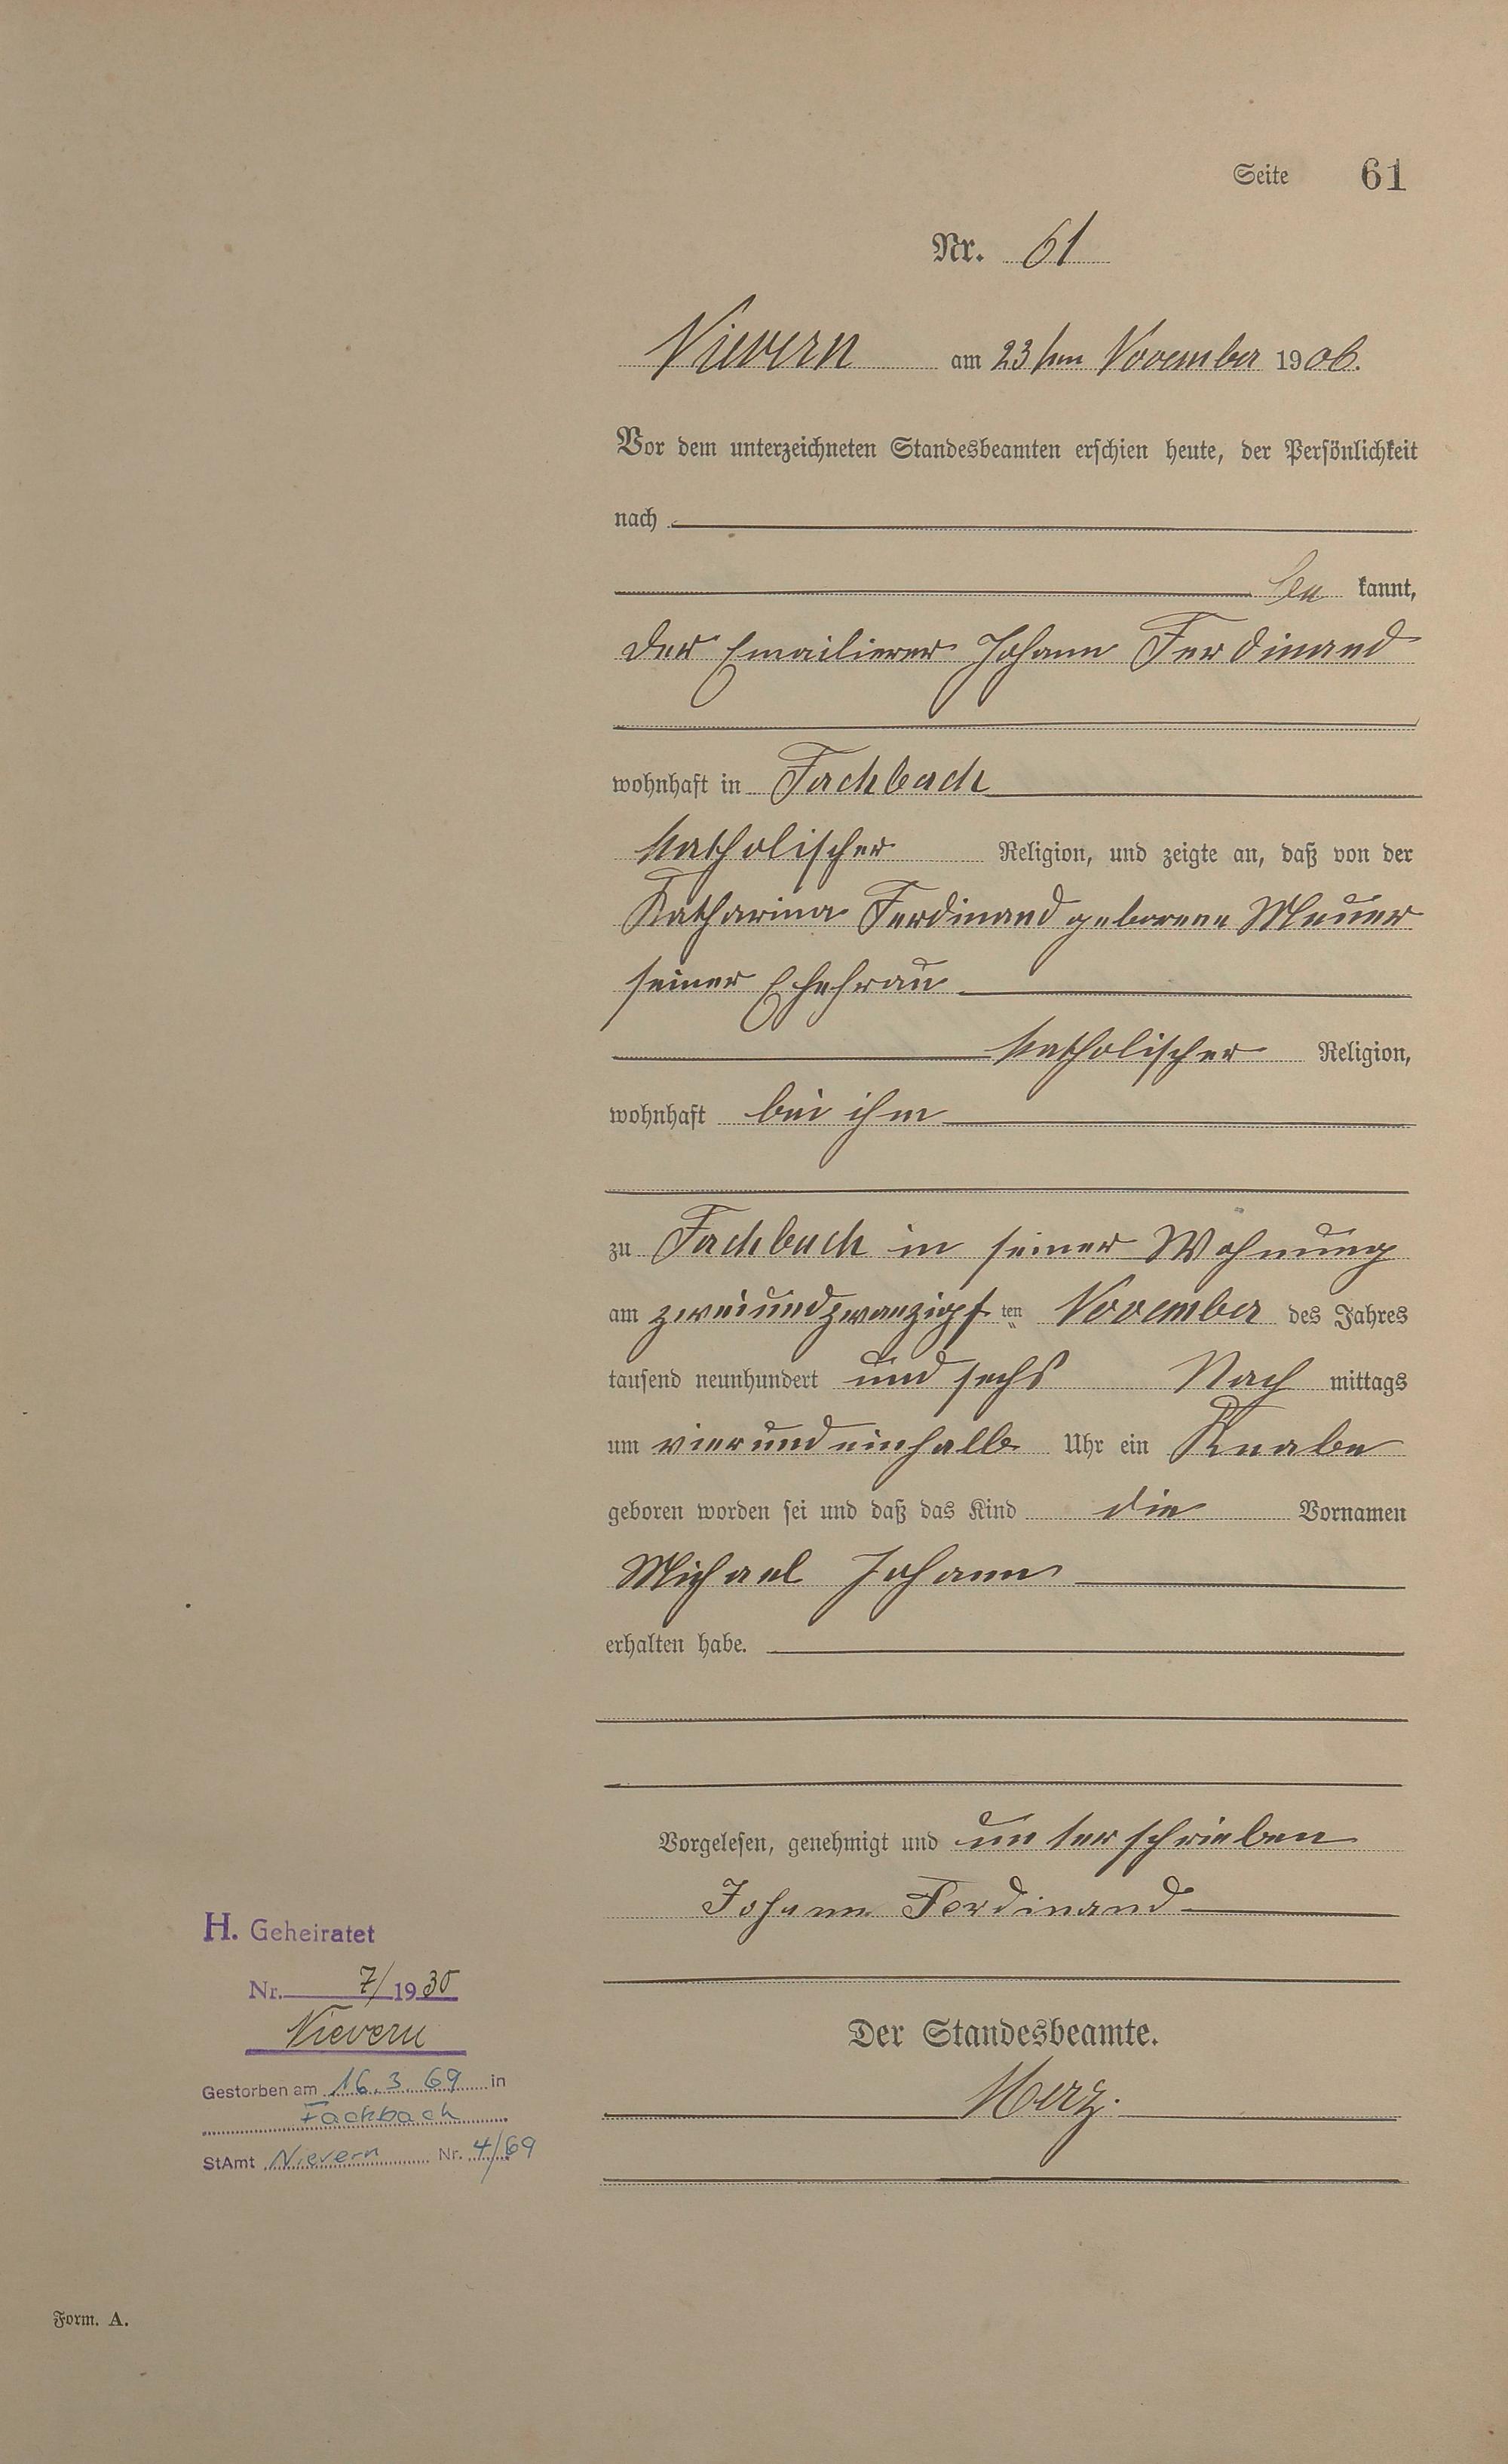 Seite 61
Nr. 61
Nievern am 23ten November 1906.
Vor dem unterzeichneten Standesbeamten erschien heute, der Persönlichkeit
nach
be kannt,
der Emailierer Johann Ferdinand
wohnhaft in Fachbach
katholischer Religion, und zeigte an, daß von der
Katharina Ferdinand geborene Meuer
seiner Ehefrau
katholischer Religion,
wohnhaft bei ihm
zu Fachbach in seiner Wohnung
am zweiundzwanzigsten November des Jahres
tausend neunhundert und sechs Nach mittags
um vierundeinhalb Uhr ein Knabe
geboren worden sei und daß das Kind die Vornamen
Michael Johann
erhalten habe.
Vorgelesen, genehmigt und unterschrieben
Johann Ferdinand
H. Geheiratet
Nr. 7/1930
Nievern
Gestorben am 16.3.69 in
Fachbach
StAmt Nievern Nr. 4/69
Der Standesbeamte.
Merz.
Form. A.